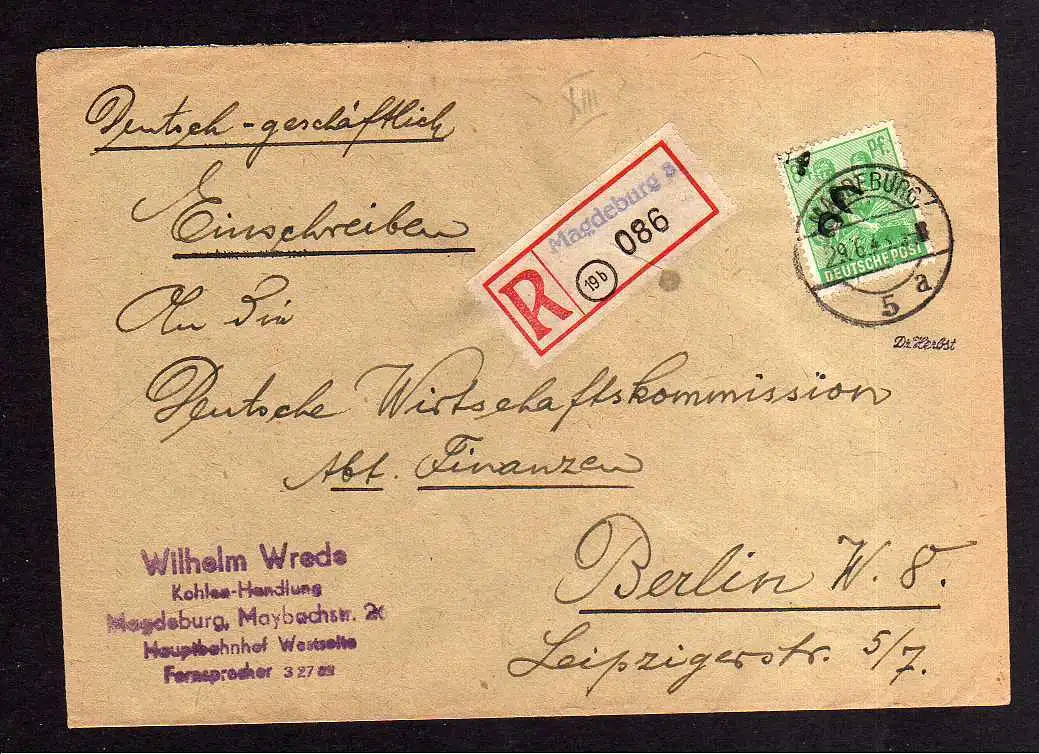 XIII
Deutsch-geschäftlich
Einschreiben
An Die
Deutsche Wirtschaftskommission
Abt. Finanzen
Berlin W. 8.
Leipzigerstr. 5/7.
R
Magdeburg 8
(19b) 086
Pf.
MAGDEBURG 1
29.6.4
5 a
DEUTSCHE POST
Dr. Herbst
Wilhelm Wrede
Kohlen-Handlung
Magdeburg, Maybachstr.
Hauptbahnhof Westseite
Fernsprecher